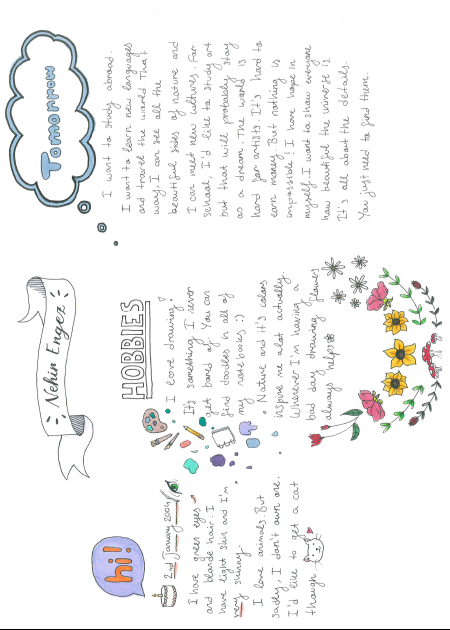 hi!
2nd January 2004
I have green eyes
and blonde hair. I
have light skin and I'm
very skinny.
I love animals. But
sadly, I don't own one.
I'd like to get a cat
though.
Nehir Engez
HOBBIES
• I love drawing.
It's something I never
get bored of. You can
find doodles in all of
my notebooks :)
• Nature and it's colors
inspire me alot actually.
Whenever I'm having a
bad day drawing flowers
always helps
Tomorrow
I want to study abroad.
I want to learn new languages
and travel the world. That
way, I can see all the
beautiful sides of nature and
I can meet new cultures. For
school, I'd like to study art
but that will probably stay
as a dream. The world is
hard for artists. It's hard to
earn money. But nothing is
impossible! I have hope in
myself. I want to show everyone
how beautiful the universe is.
It's all about the details.
You just need to find them.